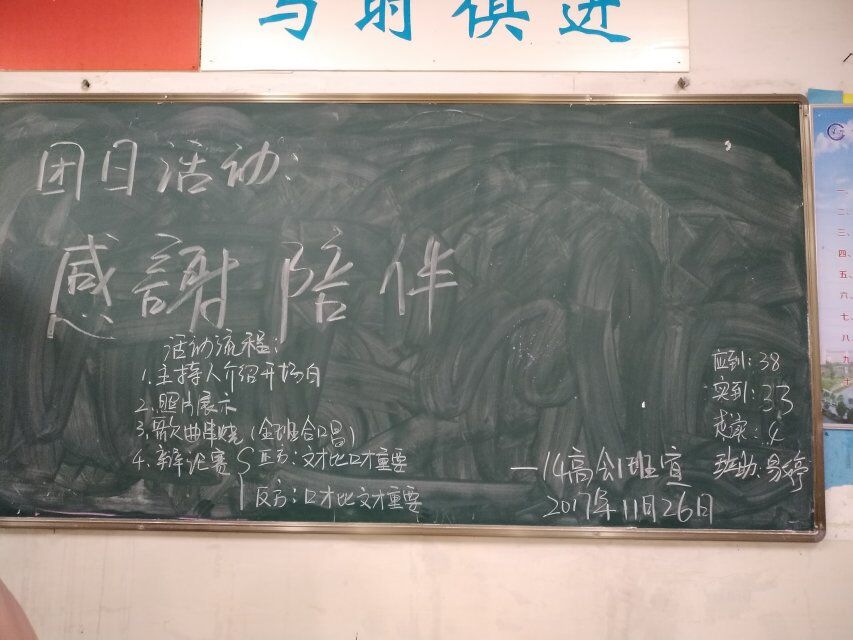 与时俱进
团日活动:
感謝陪伴
活动流程:
1.主持人介绍开场白
2.照片展示
3.歌曲串烧(全班合唱)
4.辩论赛 正方:文才比口才重要
反方:口才比文才重要
应到:38
实到:33
迟到:4
班助:易婷
一14高会1班宣
2017年11月26日
一、
二、
三、
四、
五、
六、
七、
八、
九、
十